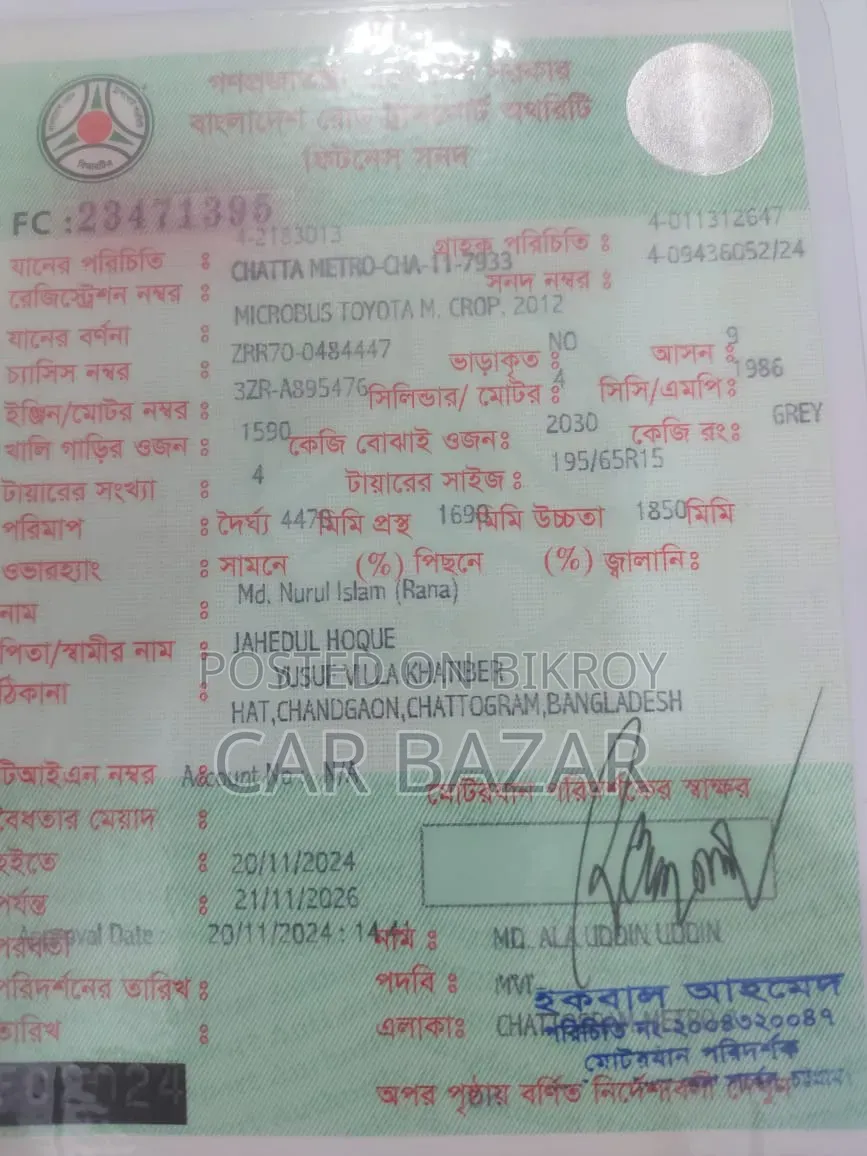 বাংলাদেশ রোড ট্রান্সপোর্ট অথরিটি
ফিটনেস সনদ
FC : 23471395
4-2183013 4-011312647
যানের পরিচিতি : গ্রাহক পরিচিতি : 4-09436052/24
রেজিস্ট্রেশন নম্বর : CHATTA METRO-CHA-11-7933 সনদ নম্বর :
যানের বর্ণনা : MICROBUS TOYOTA M. CROP, 2012
চ্যাসিস নম্বর : ZRR70-0484447 ভাড়াকৃত : NO আসন : 9
ইঞ্জিন/মোটর নম্বর : 3ZR-A895476 সিলিন্ডার/ মোটর : 4 সিসি/এমপি: 1986
খালি গাড়ির ওজন : 1590 কেজি বোঝাই ওজন: 2030 কেজি রং: GREY
টায়ারের সংখ্যা : 4 টায়ারের সাইজ : 195/65R15
পরিমাপ : দৈর্ঘ্য মিমি প্রস্থ মিমি উচ্চতা 1850মিমি
ওভারহ্যাং : সামনে (%) পিছনে (%) জ্বালানি:
নাম : Md. Nurul Islam (Rana)
পিতা/স্বামীর নাম : JAHEDUL HOQUE
ঠিকানা : YUSUF VILLA KHANBER
HAT,CHANDGAON,CHATTOGRAM,BANGLADESH
POSTED ON BIKROY
CAR BAZAR
টিআইএন নম্বর : Account No N/A
মোটরযান পরিদর্শকের স্বাক্ষর
বৈধতার মেয়াদ :
হইতে : 20/11/2024
পর্যন্ত : 21/11/2026
Approval Date : 20/11/2024 : 14:41 নাম : MD. ALA UDDIN UDDIN
পরিদর্শনের তারিখ : পদবি : MVI
তারিখ : এলাকা: CHATTOGRAM METRO
ইকবাল আহমেদ
পরিচিতি নং ২০০৪৭২০০৪৭
মোটরযান পরিদর্শক
অপর পৃষ্ঠায় বর্ণিত নির্দেশাবলী দেখুন